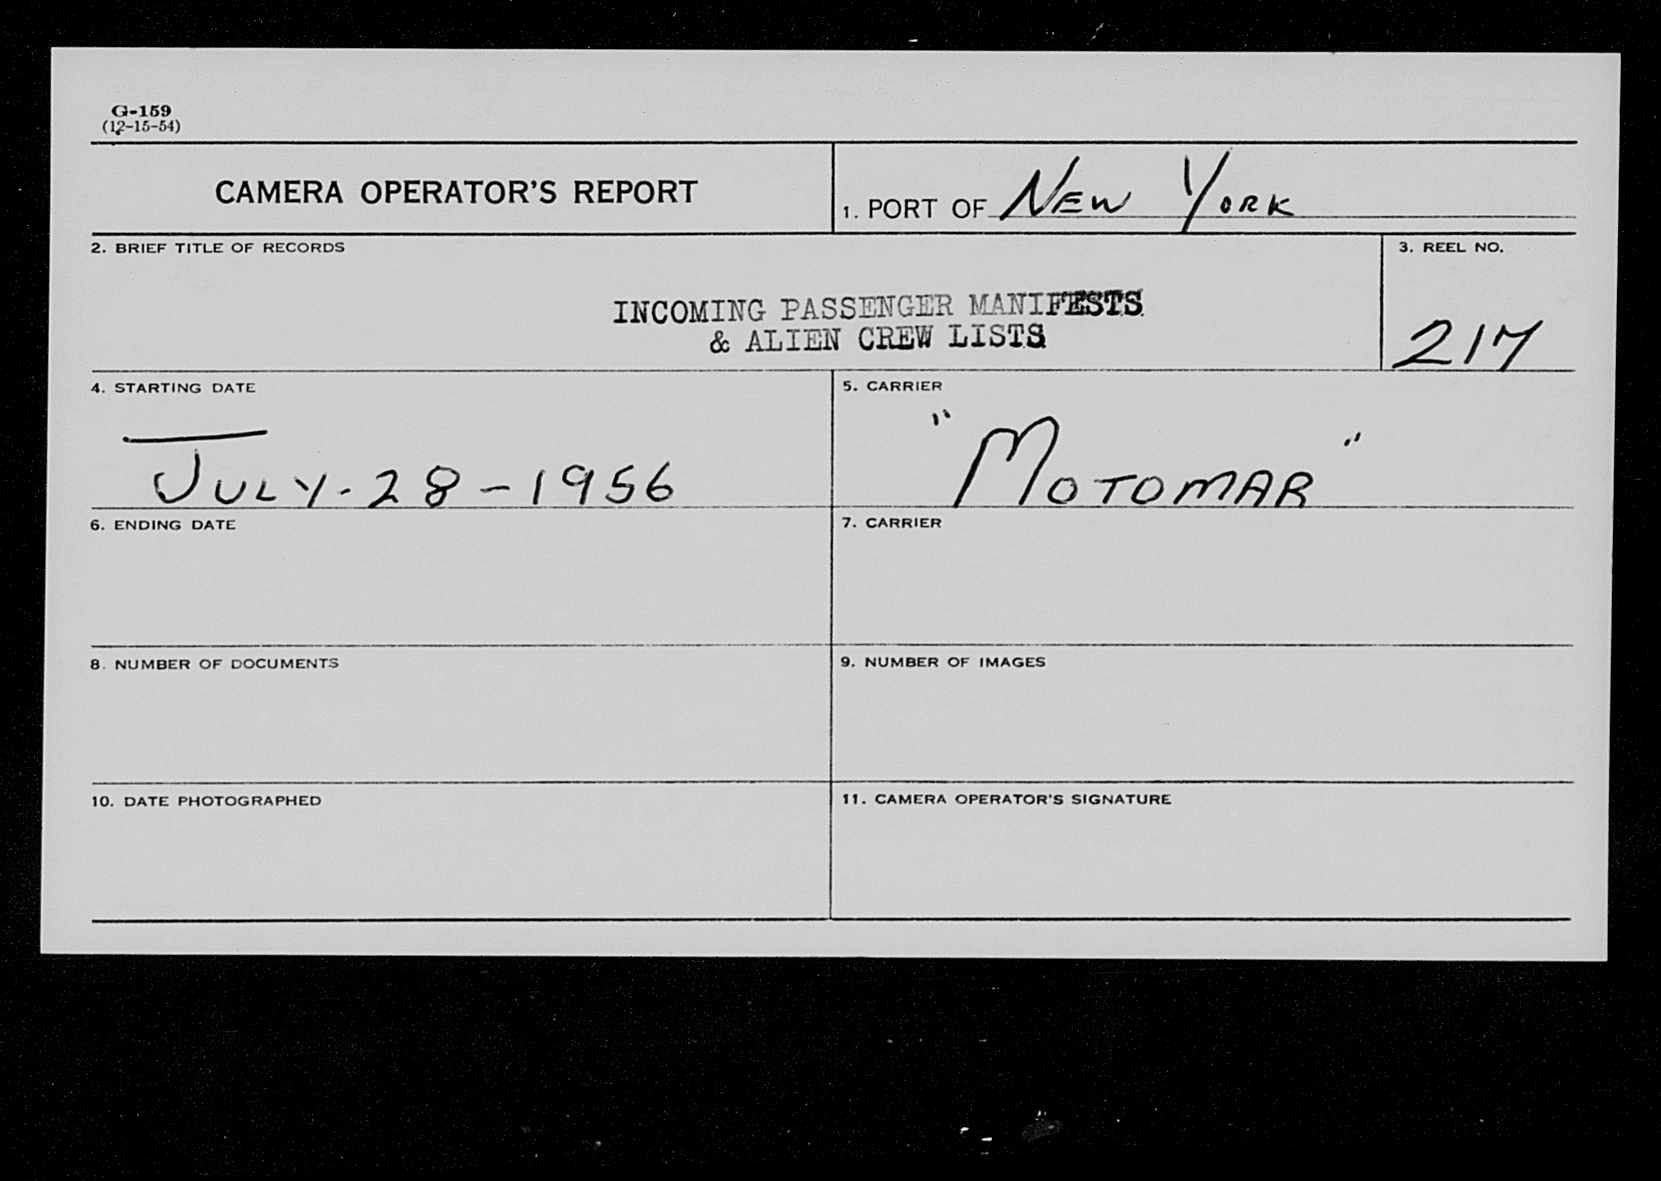 G-159
(12-15-54)
CAMERA OPERATOR'S REPORT
1. PORT OF NEW YORK
2. BRIEF TITLE OF RECORDS
3. REEL NO.
INCOMING PASSENGER MANIFESTS
& ALIEN CREW LISTS
217
4. STARTING DATE
5. CARRIER
JULY-28-1956
"MOTOMAR"
6. ENDING DATE
7. CARRIER
8. NUMBER OF DOCUMENTS
9. NUMBER OF IMAGES
10. DATE PHOTOGRAPHED
11. CAMERA OPERATOR'S SIGNATURE